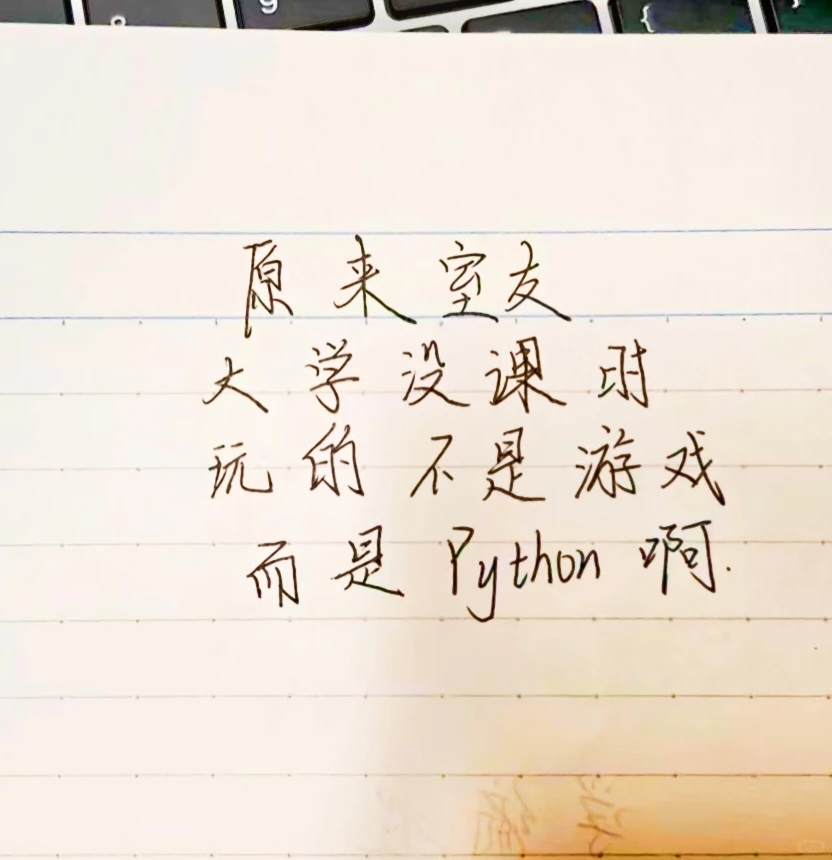 原来室友
大学没课时
玩的不是游戏
而是 Python 啊.